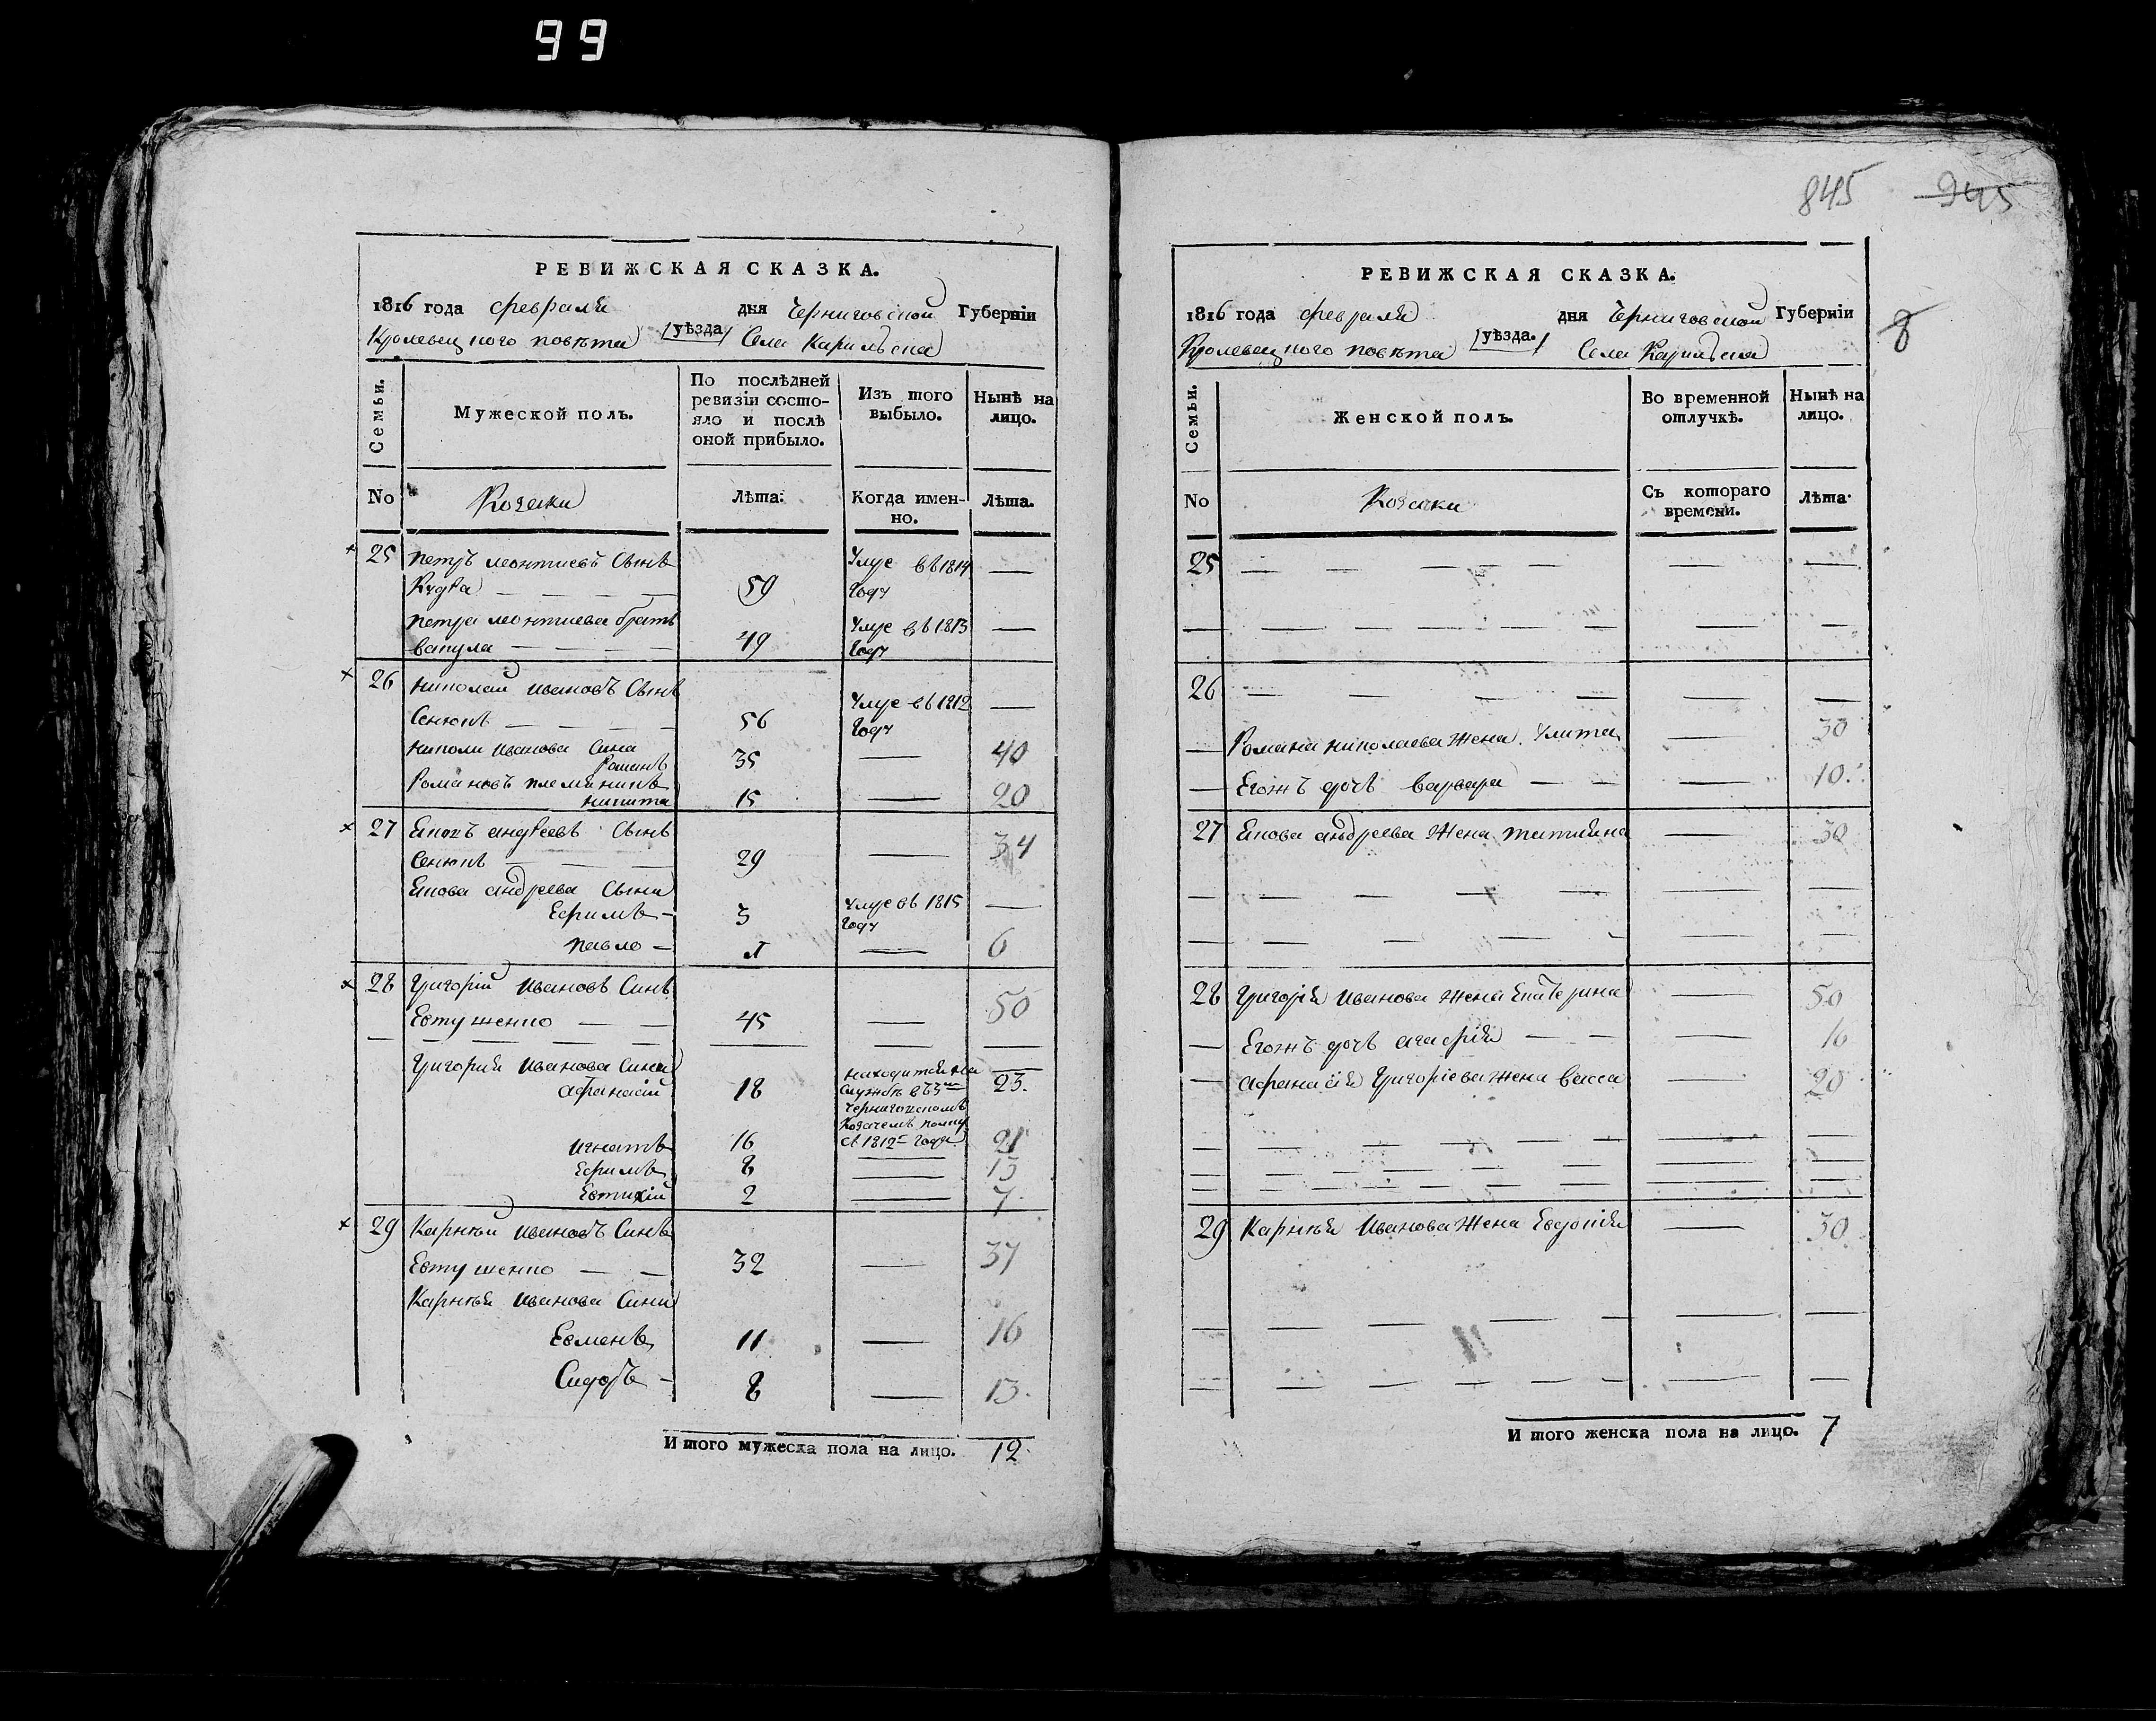 99
845 945
8
РЕВИЖСКАЯ СКАЗКА.
1816 года февраля дня Черниговской Губерніи
Кролевецкого повѣта уѣзда Села Карилъска
Семьи.
Мужеской полъ.
По послѣдней ревизіи состо-
яло и послѣ
оной прибыло.
Изъ того
выбыло.
Нынѣ на
лицо.
No Козаки Лѣта. Когда имен-
но. Лѣта.
25 Петръ леонтиевъ Сынъ Умре въ 1814 —
— — — 59 году
Петра леонтиева братъ Умре въ 1813 —
вакула — — — 49 году
26 Николай Ивановъ Сынъ Умре въ 1812 —
Сенюкъ — — — 56 году
Николи Иванова Сина
Романъ 35 — 40
Романовъ племянникъ
никита 15 — 20
27 Яковъ андреевъ Сынъ 34
Сенюкъ — — — 29 —
Якова андреева Сыни
Ефимъ — 3 умре въ 1815 году —
павло — 1 — 6
28 Григорій Ивановъ Синъ 50
Евтушенко — — 45 —
Григория Иванова Сини
афанасій 18 находится на 23.
Службѣ въ 3м
Черниговскомъ
Козачемъ полку
съ 1812г года
игнатъ 16 — 21
Ефимъ 8 — 13
Евтихій 2 — 7
29 Карнѣй Ивановъ Синъ 37
Евтушенко — — 32 —
Карнѣя Иванова Сини
Евменъ 11 — 16
Сидоръ — 8 — 13.
Итого мужеска пола на лицо. 12
РЕВИЖСКАЯ СКАЗКА.
1816 года февраля дня Черниговской Губерніи
Кролевецкого повѣта уѣзда. Села Карилъска
Семьи.
Женской полъ.
Во временной
отлучкѣ.
Нынѣ на
лицо.
No Козаки Съ котораго
времени. Лѣта.
25 — — — — — — —
— — — — — — —
26 — — — — — —
— Романа николаева жена Улита — 30
— Егожъ дочъ варвара — — — 10.
27 Якова андреева жена татияна — 30
— — — — — — —
— — — — — — —
28 Григорія Иванова жена Екатерина — 50
— Егожъ дочъ агафія — — — 16
— афанасія Григоріева жена васса — 20
— — — — — — —
— — — — — — —
— — — — — — —
29 Карнѣя Иванова жена Евдокія — 30
— — — — — — —
— — — — — — —
Итого женска пола на лицо. 7